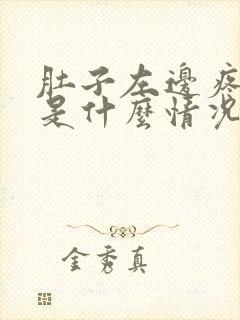 肚子左邊疼
是什麼情況
金秀真